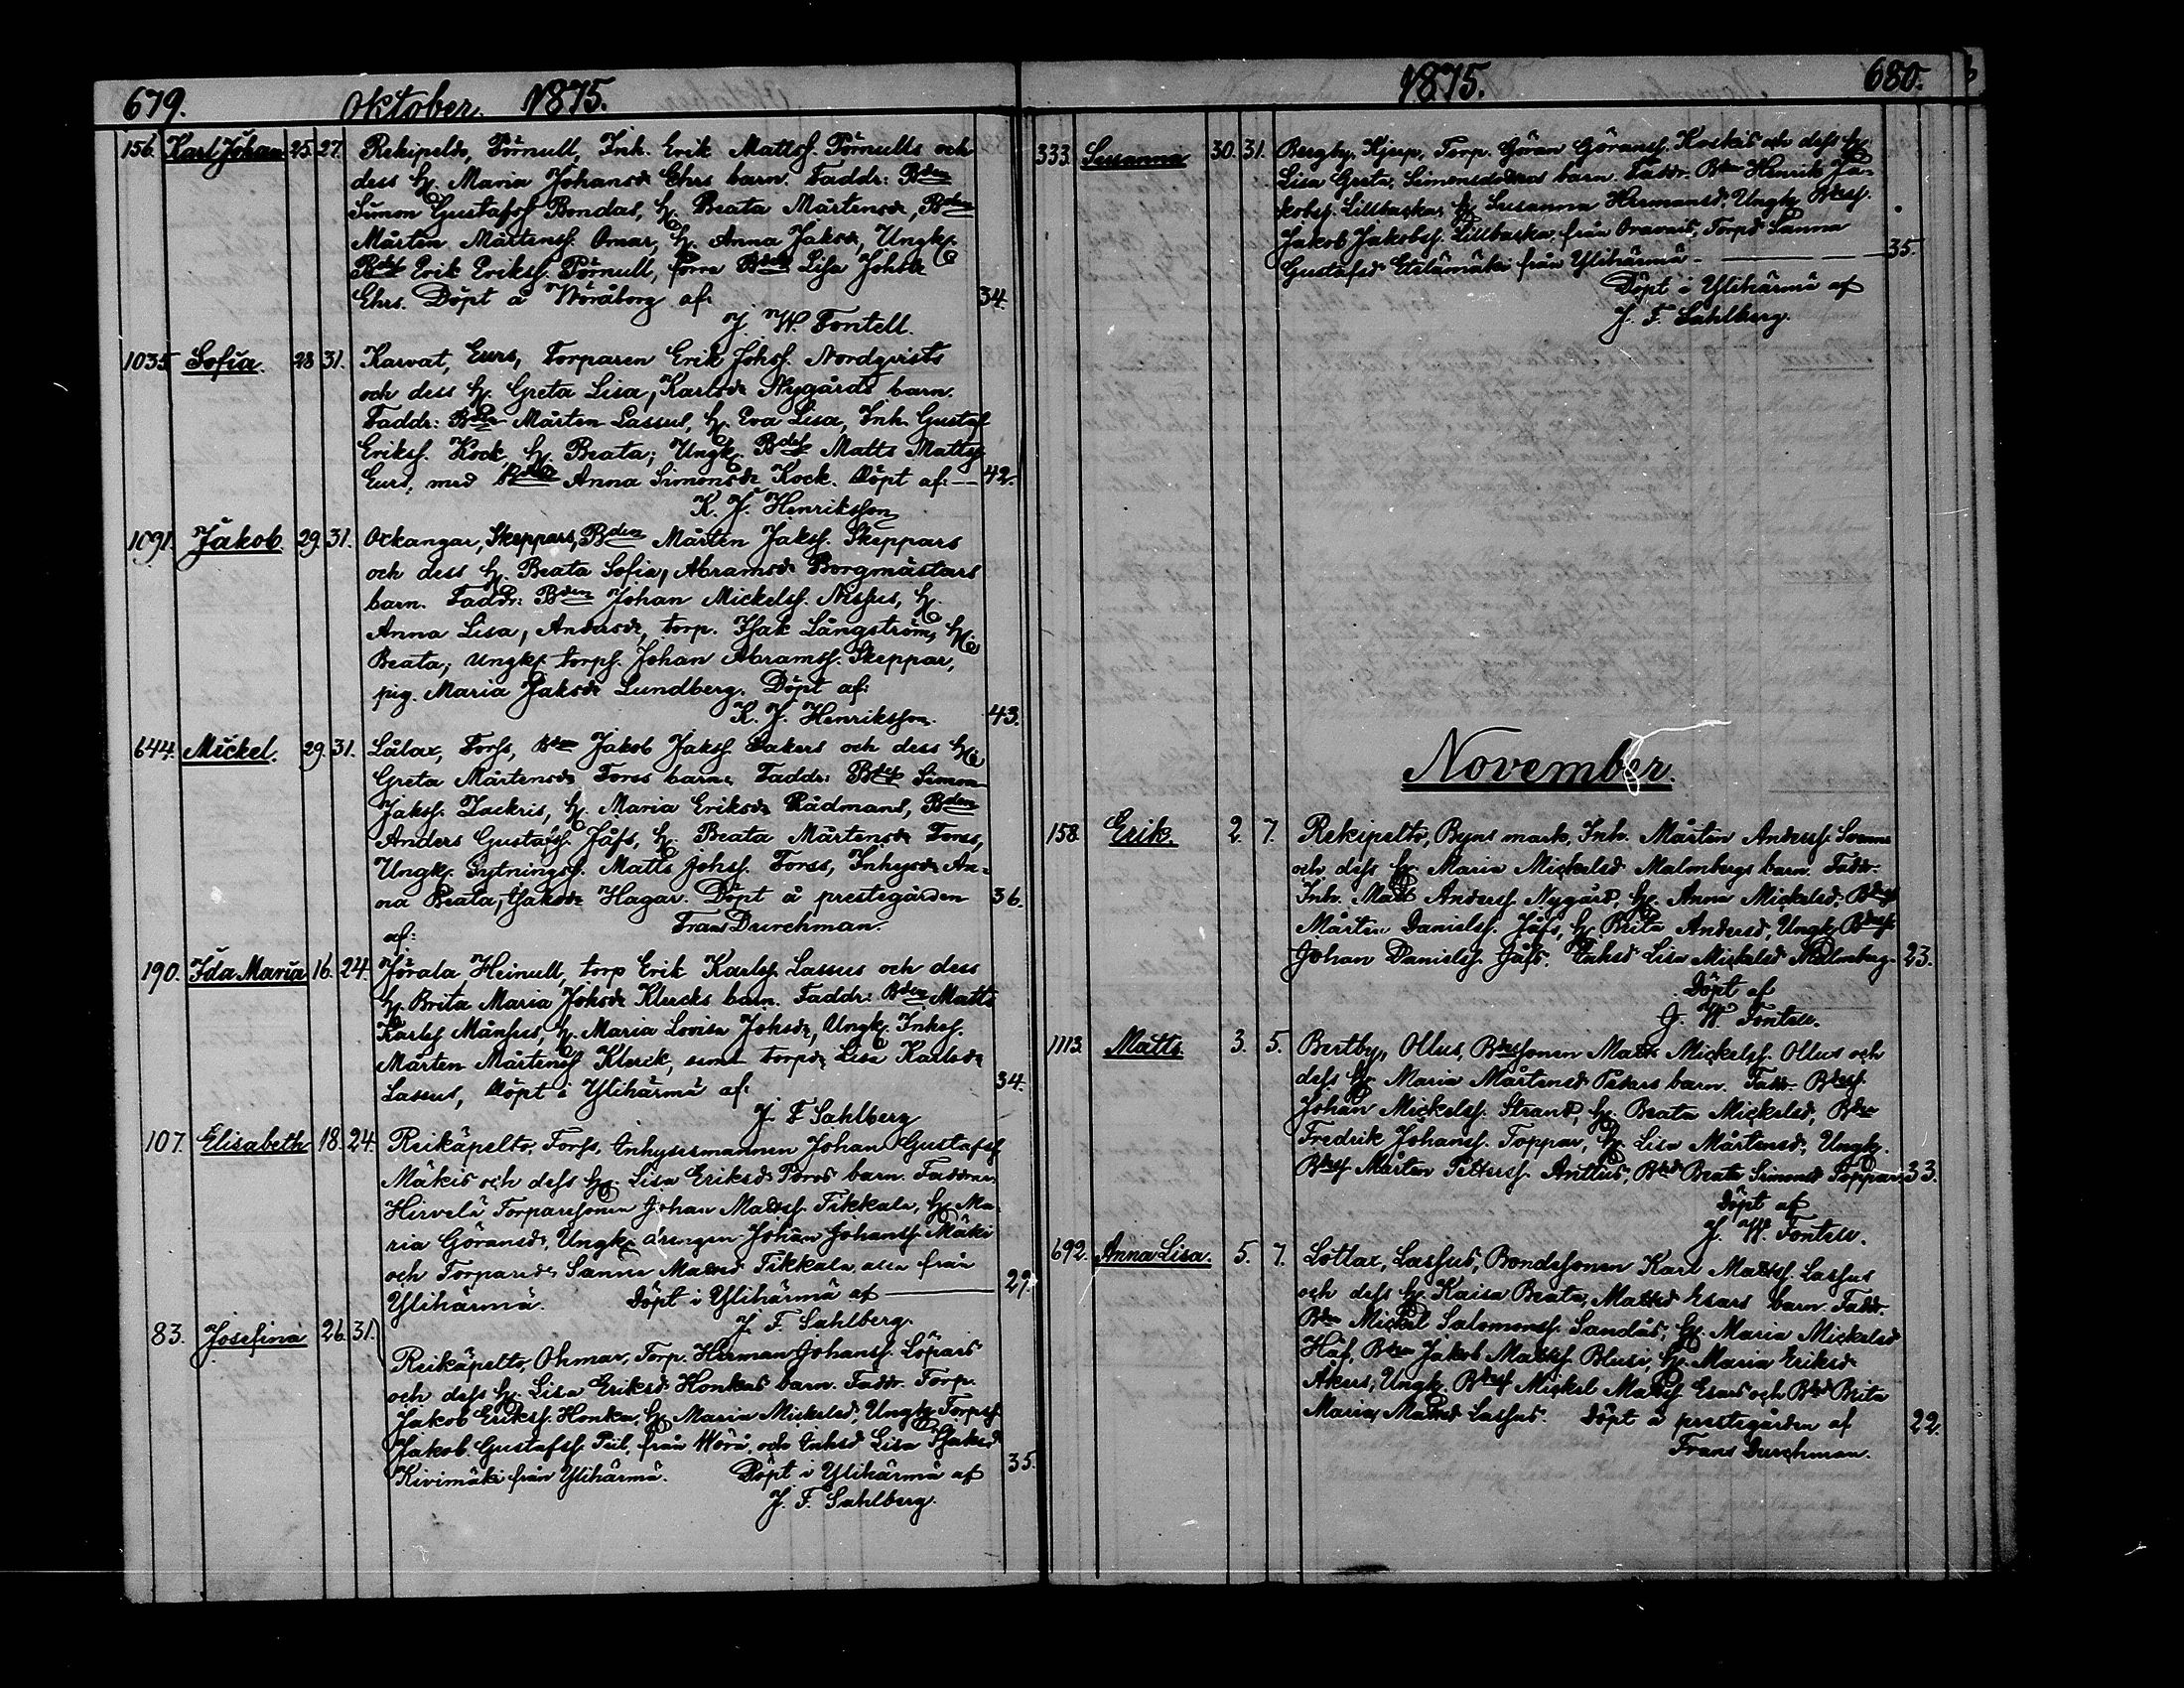 679. Oktober. 1875.
156. Karl Johan 25. 27. Rekipeldo, Pörnull, Inh. Erik Mattsſ. Pörnulls och
dess H. Maria Johansdr Ehrs barn. Faddr: Bden
Simon Gustafsſ Bondas, H. Beata Mårtensdr, Bden
Mårten Mårtensſ. Omar, H. Anna Jaksdr, Ungk.
Erik Eriksſ. Pörnull, Lisa Johsdr
Ehrs. Döpt å Wöråborg af: 34.
J. W. Fontell.
1035 Sofia. 28 31. Karvat, Eurs, Torparen Erik Johsſ. Nordqvists
och dess H. Greta Lisa, Karlsdr Nygårds barn.
Faddr: Bden Mårten Lassus, H. Eva Lisa, Inh. Gustaf
Eriksſ. Kock, H. Beata; Ungk. Bdeſ Matts Mattsſ
Eurs, med Anna Simonsdr Kock. Döpt af: — 42.
K. J. Henriksson
1091. Jakob. 29. 31. Ockangar, Skeppars, Bden Mårten Jaksſ. Skeppars
och dess H. Beata Sofia, Abramsdr Borgmästars
barn. Faddr: Bden Johan Mickelsſ. Nissus, H.
Anna Lisa, Andersdr, torp. Isak Långström, H.
Beata; Ungk. torpſ. Johan Abramsſ. Skeppar,
pig. Maria Jaksdr Lundberg. Döpt af:
K. J. Henriksson. 43.
644. Mickel. 29. 31. Lålax, Forss, Bden Jakob Jaksſ. Bakers och dess H.
Greta Mårtensdr Forss barn. Faddr: Simon
Jaksſ. Zackris, H. Maria Eriksdr Rådmans, Bden
Anders Gustafsſ. Jåfs, H. Beata Mårtensdr Forss,
Ungk. Matts Johsſ. Forss, Inhysdr An-
na Beata, Isaksdr Hagar. Döpt å prestegården 36.
af: Frans Durchman.
190. Ida Maria 16. 24. Jörala Heinull, torp Erik Karlsſ. Lassus och dess
H. Brita Maria Johsdr Klercks barn. Faddr: Bden Matts
Karlsſ Månsus, H. Maria Lovisa Johsdr, Ungk. Inhsſ.
Mårten Mårtensſ Klerck, samt torpdr Lisa Karlsdr
Lassus, Döpt i Ylihärmä af: 34.
J. F. Sahlberg
107. Elisabeth 18. 24. Reikäpelto, Forss, Inhysesmannen Johan Gustafsſ
Mäkis och dess H. Lisa Eriksdr barn. Faddrar,
Hirvelä Torparesonen Johan Mattsſ. Tikkala, H. Ma-
ria Göransdr, Ungk. drengen Johan Johansſ. Mäki
och Torparedr Sanna Mattsd Tikkala alla från
Ylihärmä. Döpt i Ylihärmä af — 29.
J. F. Sahlberg.
83. Josefina 26. 31. Reikäpelto, Ohmar, Torp. Herman Johansſ. Löpars
och dess H. Lisa Eriksdr Honkas barn. Faddr. Torp.
Jakob Eriksſ. Honka, H. Maria Mickelsd, Ungk. Torpsſ.
Jakob Gustafsſ. Piil, från Wörå, och Inhsd Lisa Isaksd
Kivimäki från Ylihärmä. Döpt i Ylihärmä af 35.
J. F. Sahlberg.
1875. 680.
333. Susanna 30. 31. Bergby, Kjerp, Torp. Göran Göransſ. Koskis och dess H.
Lisa Greta, Simonsdotras barn. Faddr. Bden Henrik Ja-
kobsſ. Lillbacka, H. Susanna Hermansd, Ungk. Bdesſ.
Jakob Jakobsſ. Lillbacka, från Oravais, Torpd Sanna
Gustafsd Etelämäki från Ylihärmä — 35.
Döpt i Ylihärmä af
J. F. Sahlberg.
November.
158. Erik. 2. 7. Rekipelto, Byns mark, Inh. Mårten Andersſ. Svenns
och dess H. Maria Mickelsd Malmbergs barn. Faddr.
Inh. Matts Andersſ. Nygård, H. Anna Mickelsd,
Mårten Danielsſ. Jåfs, H. Brita Andersd, Ungk. Bdesſ.
Johan Danielsſ. Jåfs. Inhsd Lisa Mickelsd Malmberg. 23.
Döpt af
J. W. Fontell.
1113. Matts 3. 5. Bertby, Ollus, Bdessonen Matts Mickelsſ. Ollus och
dess H. Maria Mårtensd Peters barn. Faddr. Bdesſ.
Johan Mickelsſ. Strand, H. Beata Mickelsd, Bden
Fredrik Johansſ. Toppar, H. Lisa Mårtensd, Ungk.
Bdesſ Mårten Pettersſ. Anttus, Bdsd Beata Simonsd Toppar. 33.
Döpt af
J. W. Fontell.
692. Anna Lisa. 5. 7. Lottax, Lassus, Bondesonen Karl Mattsſ. Lassus
och dess H. Kaisa Beata, Mattsd Esars barn. Faddr.
Bden Mickel Salomonsſ. Sandås, H. Maria Mickelsd
Håf, Bden Jakob Mattsſ. Blusi, H. Maria Eriksd
Akers, Ungk. Bdesſ Mickel Mattsſ Esars och Bdsd Brita
Maria, Mattsd Lassus. Döpt å prestegården af 22.
Frans Durchman.